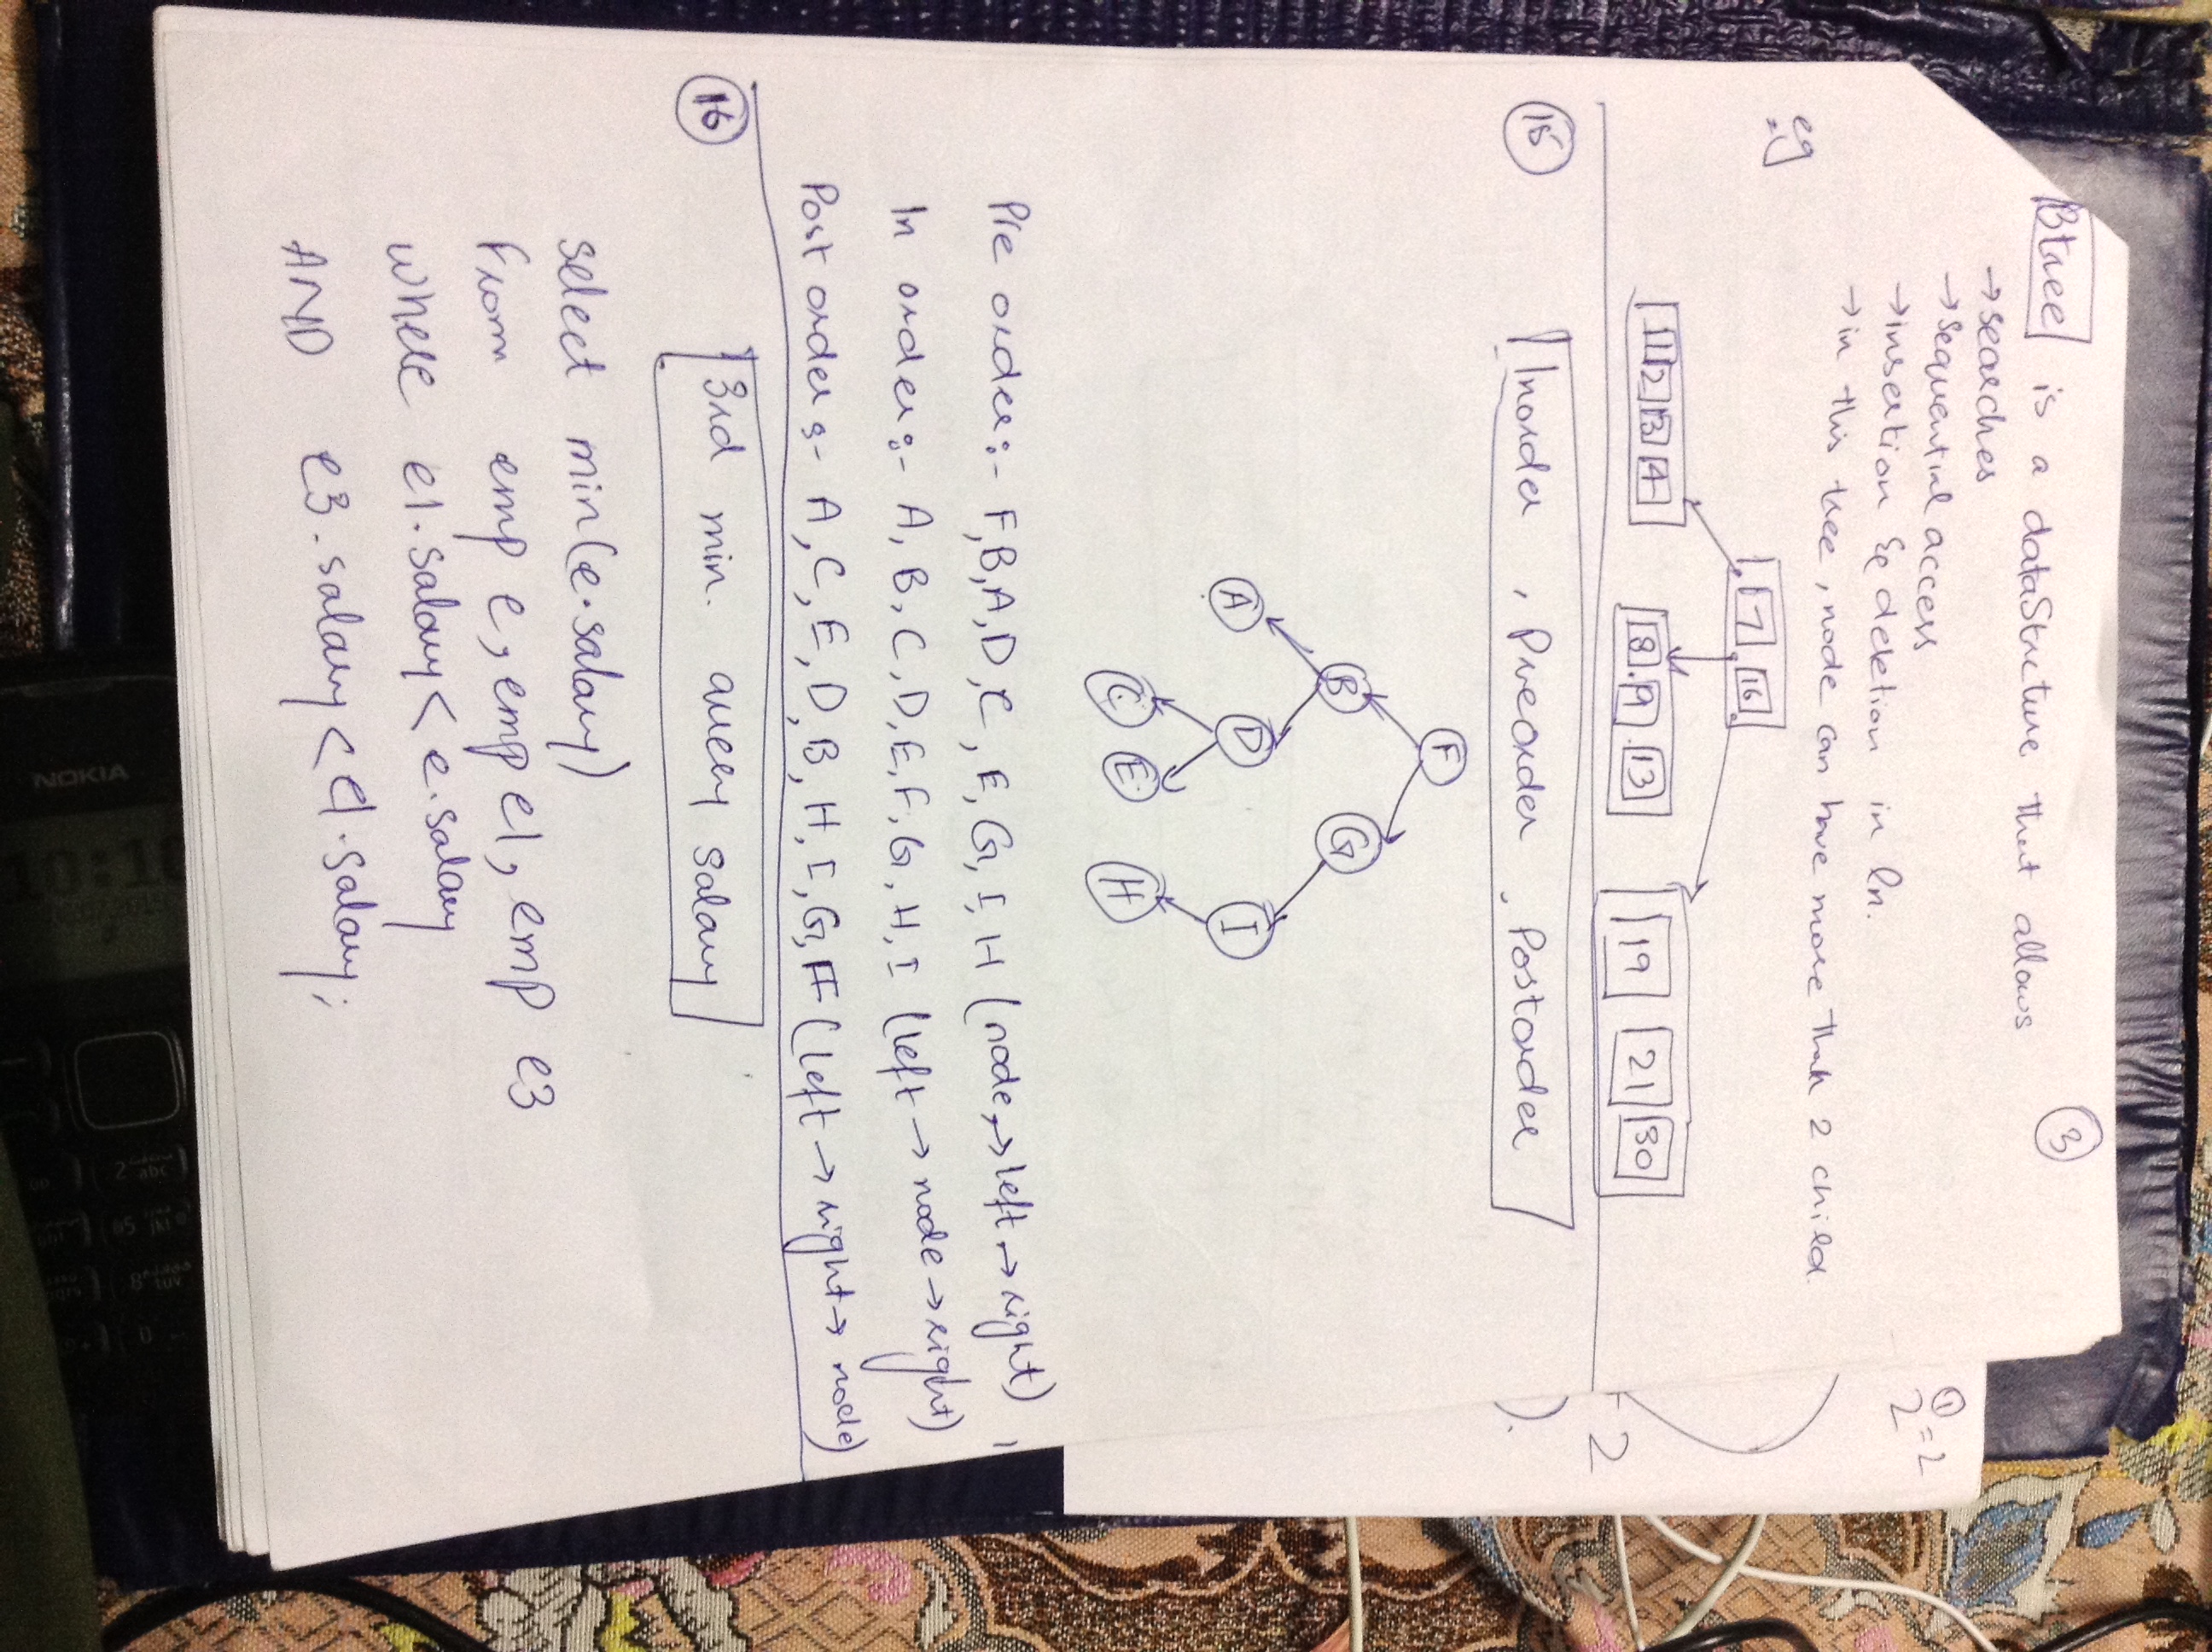 Btree is a dataStrcture that allows
3
→ searches
→ Sequential access
→ insertion & deletion in ln.
→ in this tree, node can have more than 2 child.
eg
7 16
1 2 3 4
8 9 13
19 21 30
1
2 = 2
2
).
15
Inorder, Preorder, Postorder
F
B G
A D I
C E H
Pre order:- F, B, A, D, C, E, G, I, H (node → left → right)
In order:- A, B, C, D, E, F, G, H, I (left → node → right)
Post order:- A, C, E, D, B, H, I, G, F (left → right → node)
16
3rd min. query salary
select min(e.salary)
From emp e, emp e1, emp e3
where e1.salary < e.salary
AND e3.salary < e1.salary;
NOKIA